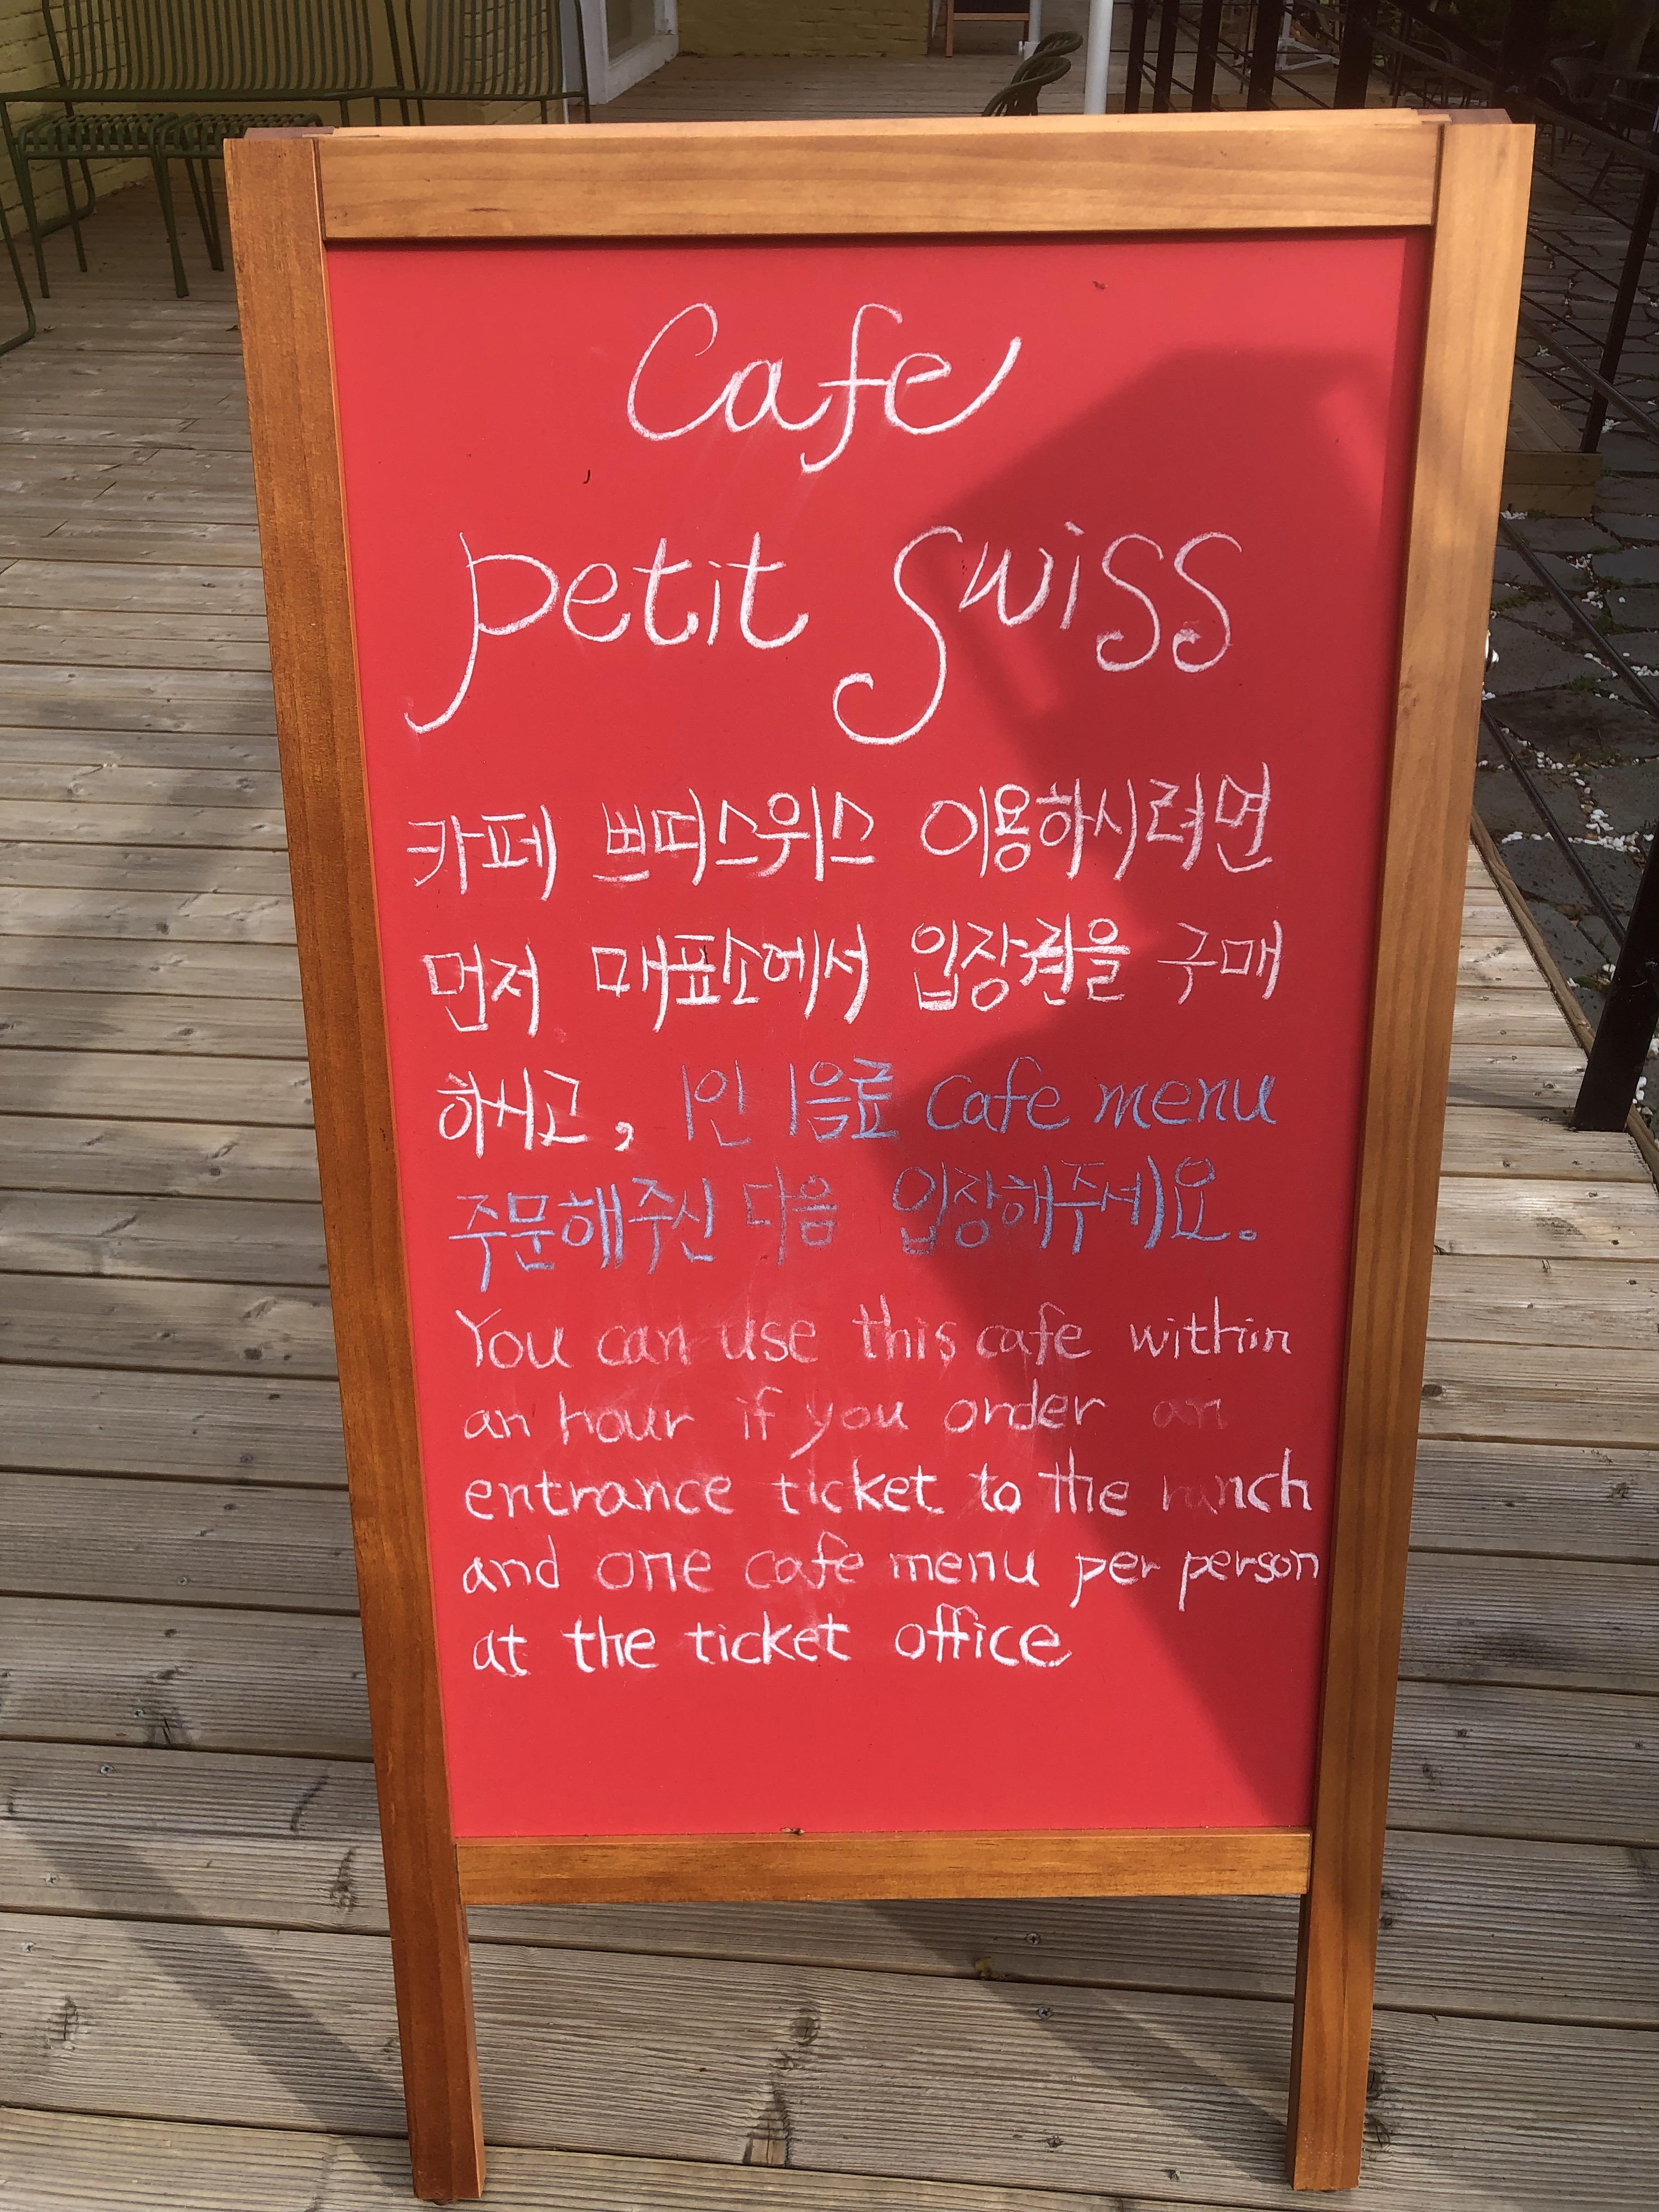 Cafe
petit Swiss
카페 쁘띠스위스 이용하시려면
먼저 매표소에서 입장권을 구매
하시고, 1인 1음료 Cafe menu
주문해주신 다음 입장해주세요.
You can use this cafe within
an hour if you order an
entrance ticket to the ranch
and one cafe menu per person
at the ticket office